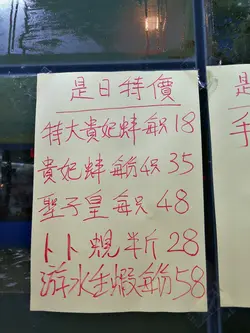 是日特價
特大貴妃蚌每只18
貴妃蚌每份4只35
聖子皇每只48
卜卜蜆半斤28
游水生蝦每份58
是